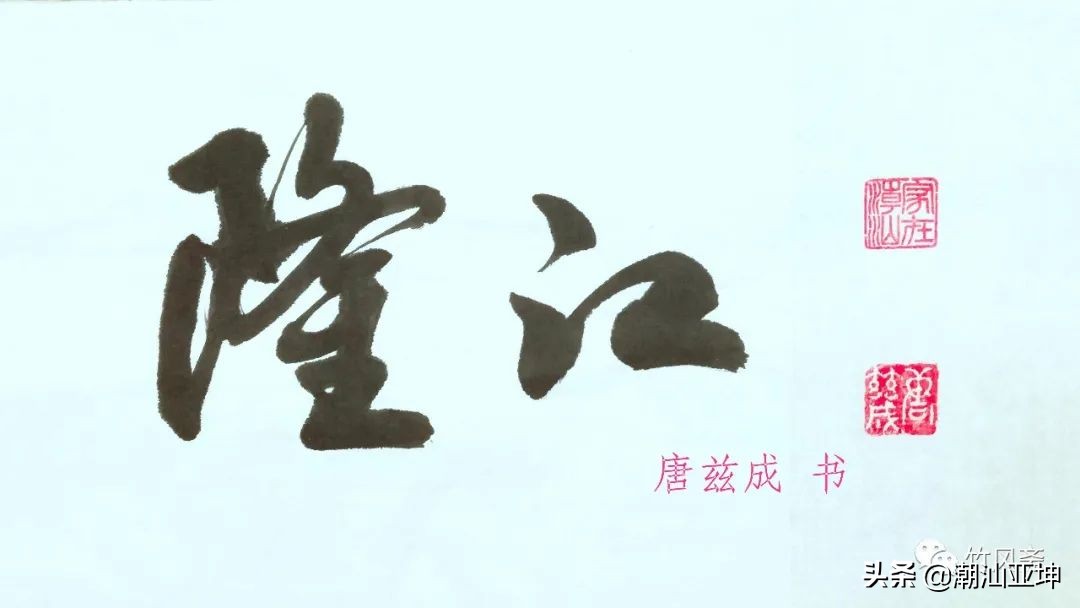 隆江
家在潮汕
唐兹成
唐兹成 书
竹风斋
头条 @潮汕亚坤